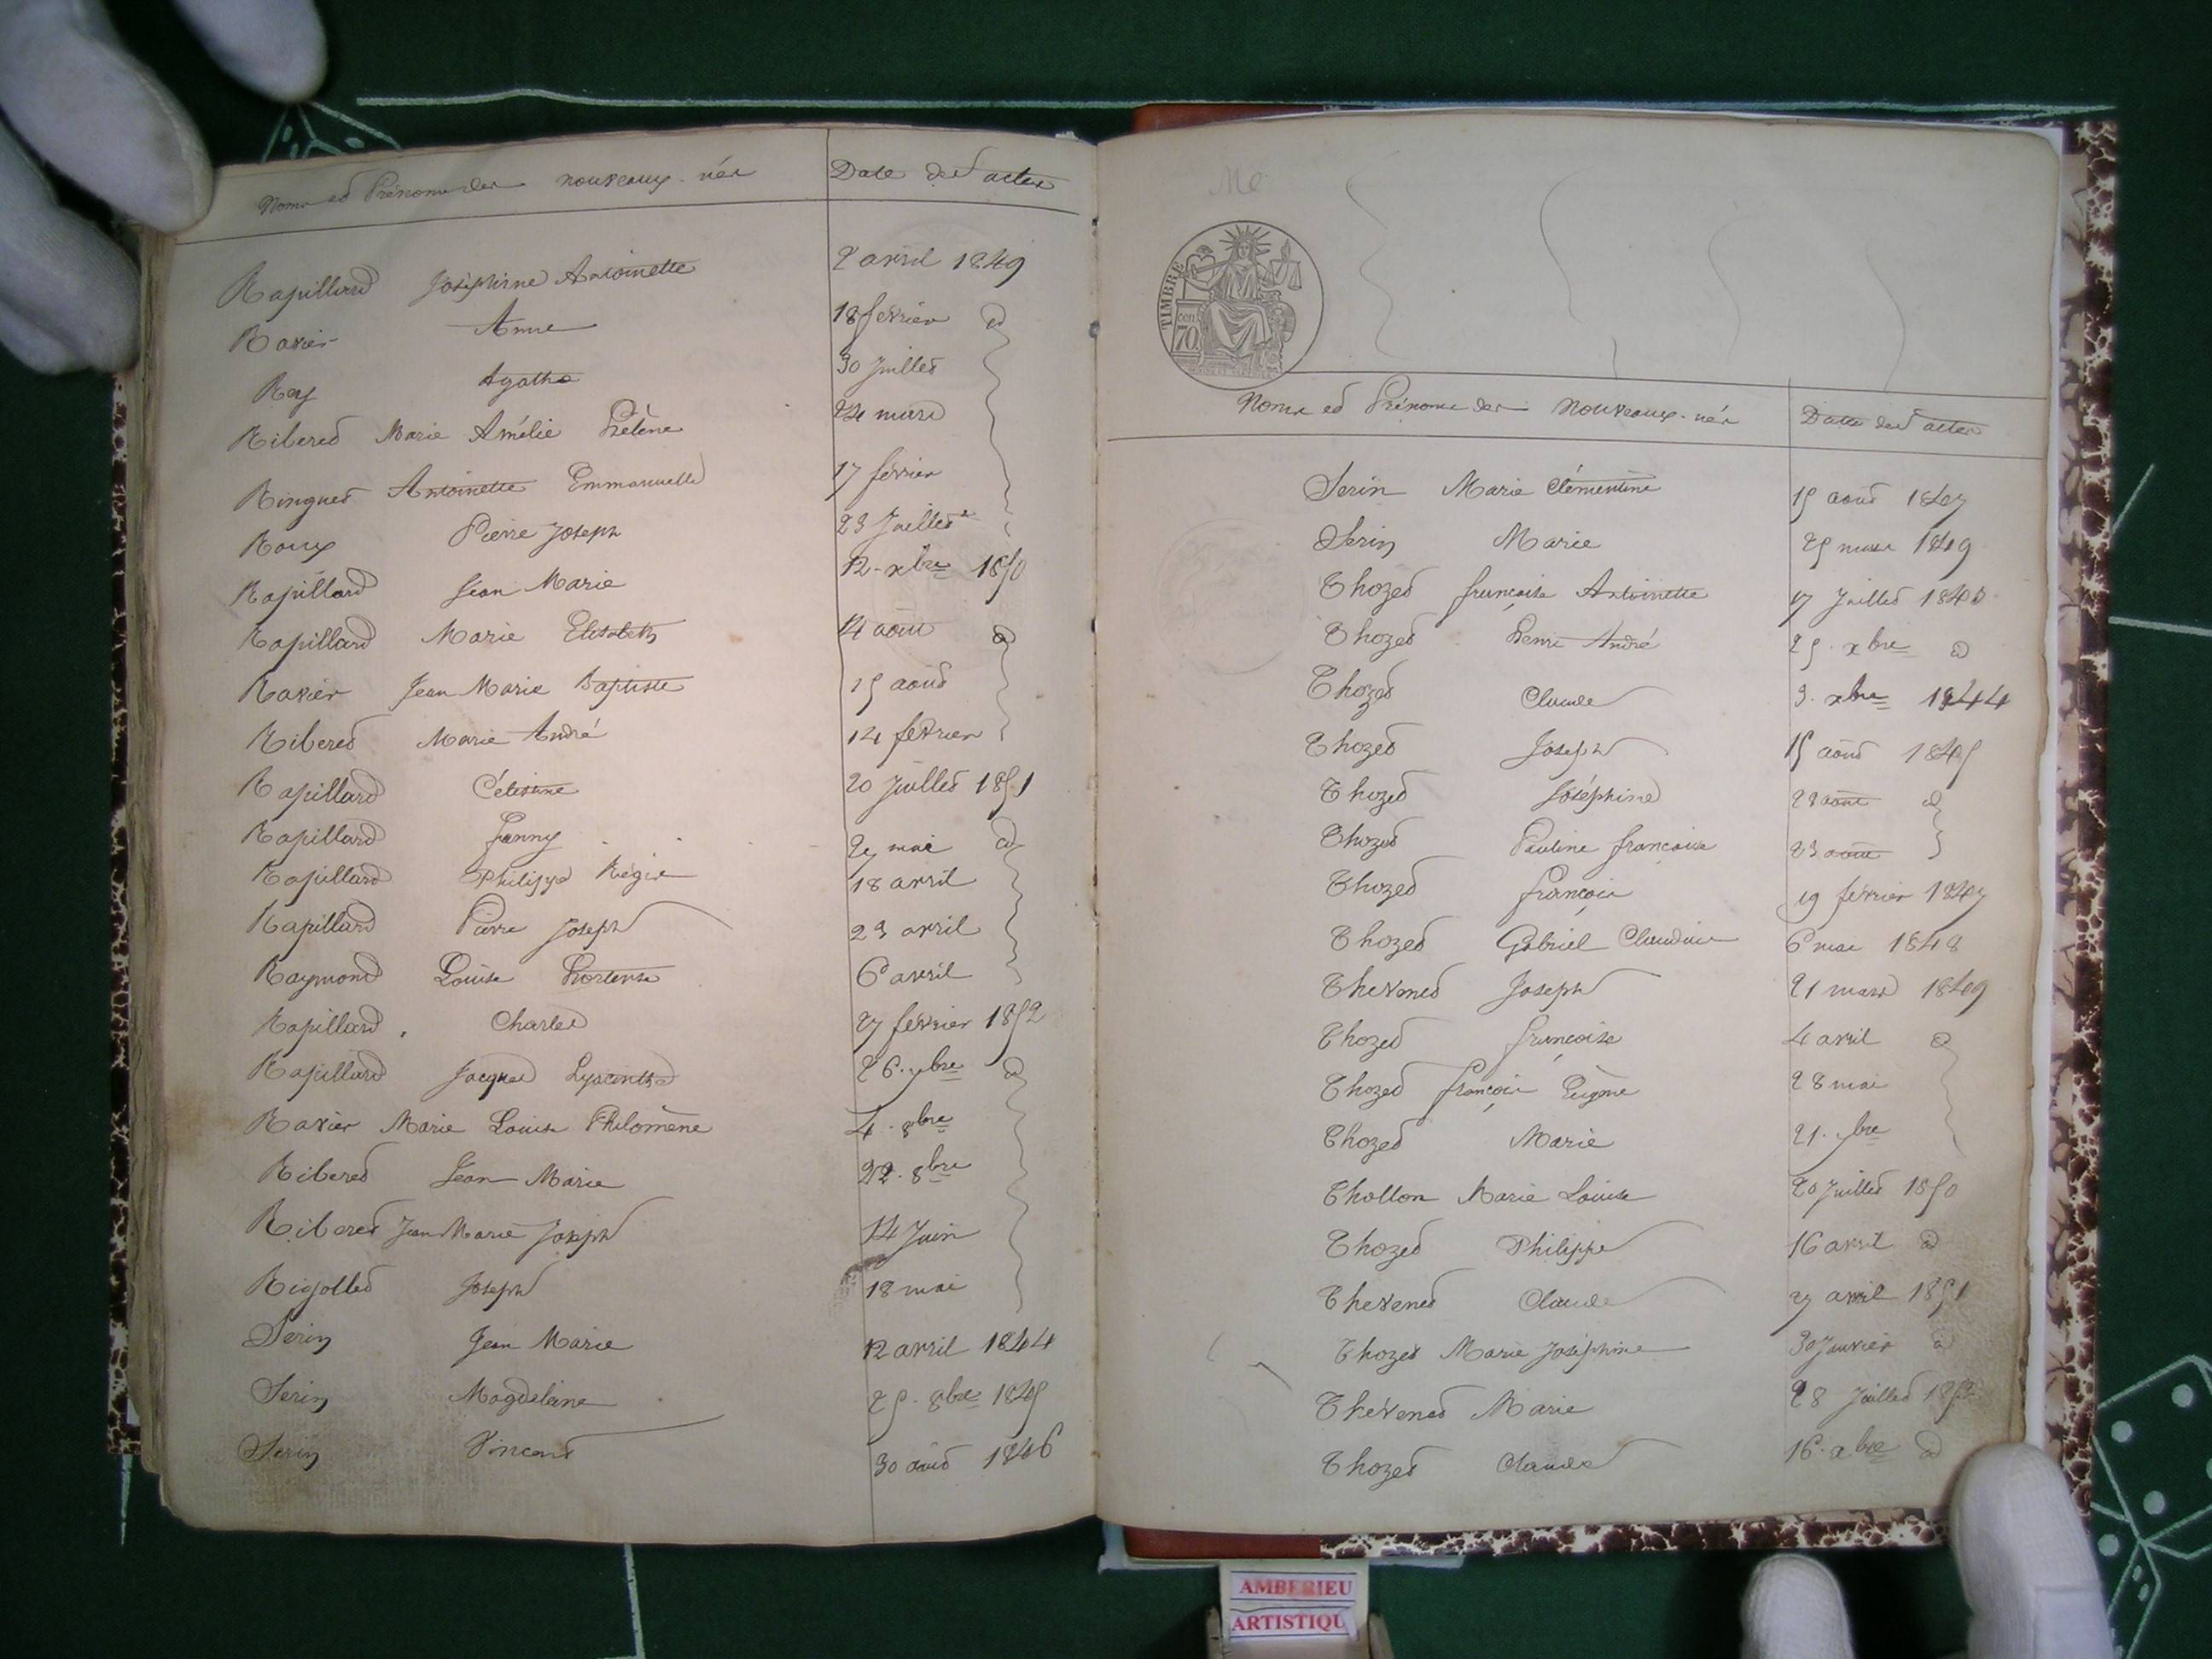 Noms et Prénoms des nouveaux-nés Date des actes
Rapillard Joséphine Antoinette 2 avril 1849
Ravier Anne 18 février d
Rey Agathe 30 Juillet
Riberet Marie Amélie Hélène 24 mars
Ringuet Antoinette Emmanuelle 17 février
Roux Pierre Joseph 23 Juillet
Rapillard Jean Marie 12 xbre 1850
Rapillard Marie Elisabeth 14 août d
Ravier Jean Marie Baptiste 15 août
Riberet Marie André 14 février
Rapillard Célestine 20 Juillet 1851
Rapillard Fanny mai d
Rapillard Philippe Régis 18 avril
Rapillard Pierre Joseph 23 avril
Raymond Louise Hortense 6 avril
Rapillard Charles 27 février 1852
Rapillard Jacques Hyacinthe 26 d
Ravier Marie Louise Philomène 4 8bre
Riberet Jean Marie 22 8bre
Riberet Jean Marie Joseph 14 Juin
Rigollet Joseph 18 mai
Serin Jean Marie 12 avril 1844
Serin Magdeleine 25 8bre 1845
Serin Vincent 30 août 1846
Me
TIMBRE
cen
70
Noms et Prénoms des Nouveaux-nés Date des actes
Serin Marie Clémentine 15 août 1847
Serin Marie 25 mars 1849
Thozet françoise Antoinette 17 Juillet
Thozet Henri André 25 xbre d
Thozet Claude 3 xbre 1844
Thozet Joseph 15 août 1845
Thozet Joséphine 28 août d
Thozet Pauline françoise 23 août
Thozet françois 19 février 1847
Thozet Gabriel Claudius 6 mai 1848
Thevenet Joseph 21 mars 1849
Thozet françoise 4 avril d
Thozet françois Eugène 28 mai
Thozet Marie 21
Thollon Marie Louise 20 Juillet 1850
Thozet Philippe 16 avril d
Thevenet Claude 27 avril 1851
Thozet Marie Joséphine 30 Janvier d
Thevenet Marie 28 Juillet 1852
Thozet Claude 16 xbre d
AMBERIEU
ARTISTIQU